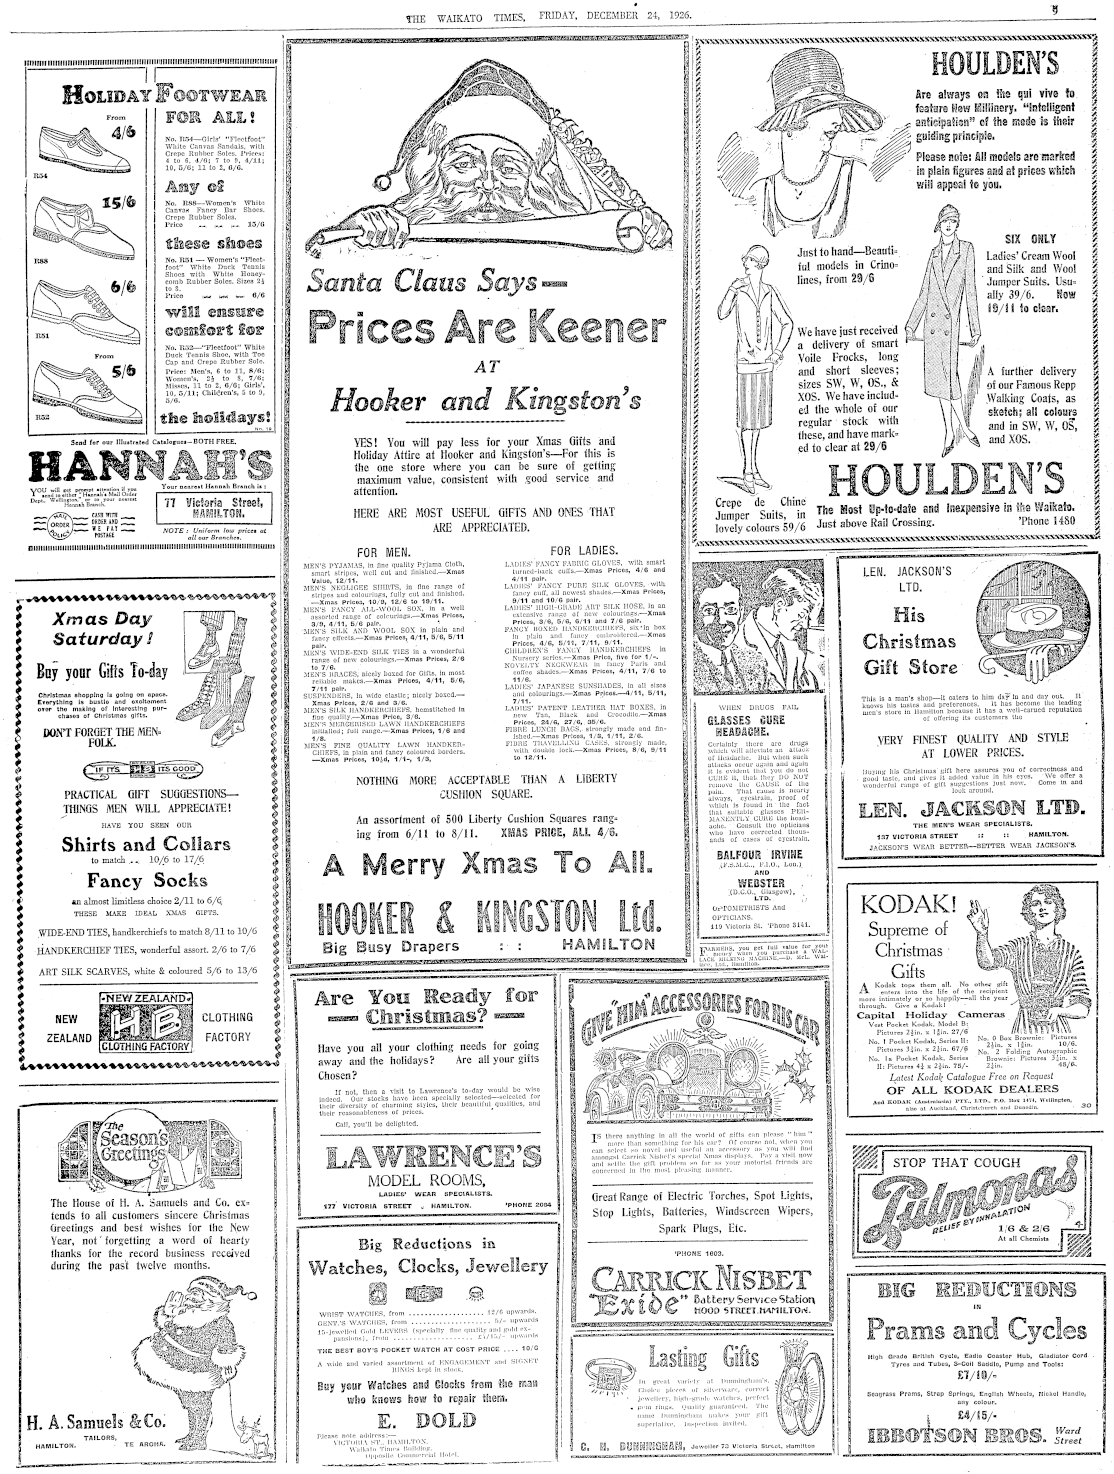 THE WAIKATO TIMES, FRIDAY, DECEMBER 24, 1926.
HOLIDAY FOOTWEAR
FOR ALL!
From
4/6
R54
15/6
R88
6/6
R51
From
5/6
R52
No. R54—Girls' "Fleetfoot"
White Canvas Sandals, with
Crepe Rubber Soles. Prices:
4 to 6, 4/6; 7 to 9, 4/11;
10, 5/6; 11 to 2, 6/6.
Any of
No. R88—Women's White
Canvas Fancy Bar Shoes.
Crepe Rubber Soles.
Price 15/6
these shoes
No. R51—Women's "Fleet-
foot" White Duck Tennis
Shoes with White Honey-
comb Rubber Soles. Sizes 2½
to 8.
Price 6/6
will ensure
comfort for
No. R52—"Fleetfoot" White
Duck Tennis Shoe, with Toe
Cap and Crepe Rubber Sole.
Price: Men's, 6 to 11, 8/6;
Women's, 2½ to 8, 7/6;
Misses, 11 to 2, 6/6; Girls',
10, 5/11; Children's, 5 to 9,
5/6.
the holidays!
Send for our Illustrated Catalogues—BOTH FREE.
HANNAH'S
YOU will get prompt attention if you
send to either "Hannah's Mail Order
Dept. Wellington," or to your nearest
Hannah Branch.
MAIL
ORDER
POLICY
CASH WITH
ORDER AND
WE PAY
POSTAGE
Your nearest Hannah Branch is:
77 Victoria Street,
HAMILTON.
NOTE: Uniform low prices at
all our Branches.
Xmas Day
Saturday!
Buy your Gifts To-day
Christmas shopping is going on apace.
Everything is bustle and excitement
over the making of interesting pur-
chases of Christmas gifts.
DON'T FORGET THE MEN-
FOLK.
IF IT'S HB IT'S GOOD
PRACTICAL GIFT SUGGESTIONS—
THINGS MEN WILL APPRECIATE!
HAVE YOU SEEN OUR
Shirts and Collars
to match .. 10/6 to 17/6
Fancy Socks
an almost limitless choice 2/11 to 6/6
THESE MAKE IDEAL XMAS GIFTS.
WIDE-END TIES, handkerchiefs to match 8/11 to 10/6
HANDKERCHIEF TIES, wonderful assort. 2/6 to 7/6
ART SILK SCARVES, white & coloured 5/6 to 13/6
NEW
ZEALAND
NEW ZEALAND
HB
CLOTHING FACTORY
CLOTHING
FACTORY
The
Season's
Greetings
The House of H. A. Samuels and Co. ex-
tends to all customers sincere Christmas
Greetings and best wishes for the New
Year, not forgetting a word of hearty
thanks for the record business received
during the past twelve months.
H. A. Samuels & Co.
TAILORS,
HAMILTON. TE AROHA.
Santa Claus Says—
Prices Are Keener
AT
Hooker and Kingston's
YES! You will pay less for your Xmas Gifts and
Holiday Attire at Hooker and Kingston's—For this is
the one store where you can be sure of getting
maximum value, consistent with good service and
attention.
HERE ARE MOST USEFUL GIFTS AND ONES THAT
ARE APPRECIATED.
FOR MEN.
MEN'S PYJAMAS, in fine quality Pyjama Cloth,
smart stripes, well cut and finished.—Xmas
Value, 12/11.
MEN'S NEGLIGEE SHIRTS, in fine range of
stripes and colourings, fully cut and finished.
—Xmas Prices, 10/9, 12/6 to 19/11.
MEN'S FANCY ALL-WOOL SOX, in a well
assorted range of colourings.—Xmas Prices,
3/9, 4/11, 5/6 pair.
MEN'S SILK AND WOOL SOX in plain and
fancy effects.—Xmas Prices, 4/11, 3/6, 5/11
pair.
MEN'S WIDE-END SILK TIES in a wonderful
range of new colourings.—Xmas Prices, 2/6
to 7/6.
MEN'S BRACES, nicely boxed for Gifts, in most
reliable makes.—Xmas Prices, 4/11, 5/6,
7/11 pair.
SUSPENDERS, in wide elastic; nicely boxed.—
Xmas Prices, 2/6 and 3/6.
MEN'S SILK HANDKERCHIEFS, hemstitched in
fine quality.—Xmas Price, 3/6.
MEN'S MERCERISED LAWN HANDKERCHIEFS
initialled; full range.—Xmas Prices, 1/6 and
1/8.
MEN'S FINE QUALITY LAWN HANDKER-
CHIEFS, in plain and fancy coloured borders.
—Xmas Prices, 10½d, 1/1-, 1/3.
FOR LADIES.
LADIES' FANCY FABRIC GLOVES, with smart
turned-back cuffs.—Xmas Prices, 4/6 and
4/11 pair.
LADIES' FANCY PURE SILK GLOVES, with
fancy cuff, all newest shades.—Xmas Prices,
9/11 and 10/6 pair.
LADIES' HIGH-GRADE ART SILK HOSE, in an
extensive range of new colourings.—Xmas
Prices, 3/6, 5/6, 6/11 and 7/6 pair.
FANCY BOXED HANDKERCHIEFS, six in box
in plain and fancy embroidered.—Xmas
Prices, 4/6, 5/11, 7/11, 9/11.
CHILDREN'S FANCY HANDKERCHIEFS in
Nursery series.—Xmas Price, five for 1/-.
NOVELTY NECKWEAR in fancy Paris and
coffee shades.—Xmas Price, 4/11, 7/6 to
11/6.
LADIES' JAPANESE SUNSHADES, in all sizes
and colourings.—Xmas Prices, 4/11, 5/11,
7/11.
LADIES' PATENT LEATHER HAT BOXES, in
new Tan, Black and Crocodile.—Xmas
Prices, 24/6, 27/6, 35/6.
FIBRE LUNCH BAGS, strongly made and fin-
ished.—Xmas Prices, 1/8, 1/11, 2/6.
FIBRE TRAVELLING CASES, strongly made,
with double lock.—Xmas Prices, 8/6, 9/11
to 12/11.
NOTHING MORE ACCEPTABLE THAN A LIBERTY
CUSHION SQUARE.
An assortment of 500 Liberty Cushion Squares rang-
ing from 6/11 to 8/11. XMAS PRICE, ALL 4/6.
A Merry Xmas To All.
HOOKER & KINGSTON Ltd.
Big Busy Drapers :: HAMILTON
Are You Ready for
Christmas?
Have you all your clothing needs for going
away and the holidays? Are all your gifts
Chosen?
If not, then a visit to Lawrence's to-day would be wise
indeed. Our stocks have been specially selected—selected for
their diversity of charming styles, their beautiful qualities, and
their reasonableness of prices.
Call, you'll be delighted.
LAWRENCE'S
MODEL ROOMS,
LADIES' WEAR SPECIALISTS.
177 VICTORIA STREET, HAMILTON. 'PHONE 2064
Big Reductions in
Watches, Clocks, Jewellery
WRIST WATCHES, from 12/6 upwards.
GENT.'S WATCHES, from 5/- upwards
15-jewelled Gold LEVERS (specially fine quality and gold ex-
pansions), from £4/15/- upwards
THE BEST BOY'S POCKET WATCH AT COST PRICE .... 10/6
A wide and varied assortment of ENGAGEMENT and SIGNET
RINGS kept in stock.
Buy your Watches and Clocks from the man
who knows how to repair them.
E. DOLD
Please note address:—
VICTORIA ST., HAMILTON,
Waikato Times Building,
Opposite Commercial Hotel.
GIVE "HIM" ACCESSORIES FOR HIS CAR
IS there anything in all the world of gifts can please "him"
more than something for his car? Of course not, when you
can select so novel and useful an accessory as you will find
amongst Carrick Nisbet's special Xmas displays. Pay a visit now
and settle the gift problem so far as your motorist friends are
concerned in the most pleasing manner.
Great Range of Electric Torches, Spot Lights,
Stop Lights, Batteries, Windscreen Wipers,
Spark Plugs, Etc.
'PHONE 1603.
CARRICK NISBET
"Exide" Battery Service Station
HOOD STREET, HAMILTON.
Lasting Gifts
In great variety at Dunningham's.
Choice pieces of silverware, correct
jewellery, high-grade watches, perfect
gem rings. Quality guaranteed. The
name Dunningham makes your gift
superlative. Inspection invited.
C. H. DUNNINGHAM, Jeweller 73 Victoria Street, Hamilton
HOULDEN'S
Are always on the qui vive to
feature New Millinery. "Intelligent
anticipation" of the mode is their
guiding principle.
Please note: All models are marked
in plain figures and at prices which
will appeal to you.
Just to hand—Beauti-
ful models in Crino-
lines, from 29/6
SIX ONLY
Ladies' Cream Wool
and Silk and Wool
Jumper Suits. Usu-
ally 39/6. Now
19/11 to clear.
We have just received
a delivery of smart
Voile Frocks, long
and short sleeves;
sizes SW, W, OS., &
XOS. We have includ-
ed the whole of our
regular stock with
these, and have mark-
ed to clear at 29/6
A further delivery
of our Famous Repp
Walking Coats, as
sketch; all colours
and in SW, W, OS,
and XOS.
Crepe de Chine
Jumper Suits, in
lovely colours 59/6
HOULDEN'S
The Most Up-to-date and Inexpensive in the Waikato.
Just above Rail Crossing. 'Phone 1480
WHEN DRUGS FAIL
GLASSES CURE
HEADACHE.
Certainly there are drugs
which will alleviate an attack
of Headache. But when such
attacks occur again and again
it is evident that you do not
CURE it, that they DO NOT
remove the CAUSE of the
pain. That cause is nearly
always, eyestrain, proof of
which is found in the fact
that suitable glasses PER-
MANENTLY CURE the head-
ache. Consult the opticians
who have corrected thous-
ands of cases of eyestrain.
BALFOUR IRVINE
(F.S.M.C., F.I.O., Lon.)
AND
WEBSTER
(D.C.O., Glasgow),
LTD.
OPTOMETRISTS And
OPTICIANS.
119 Victoria St. 'Phone 3141.
FARMERS, you get full value for your
money when you purchase a WAL-
LACE MILKING MACHINE.—D. McL. Wal-
lace, Ltd., Hamilton.
LEN. JACKSON'S
LTD.
His
Christmas
Gift Store
This is a man's shop—it caters to him day in and day out. It
knows his tastes and preferences. It has become the leading
men's store in Hamilton because it has a well-earned reputation
of offering its customers the
VERY FINEST QUALITY AND STYLE
AT LOWER PRICES.
Buying his Christmas gift here assures you of correctness and
good taste, and gives it added value in his eyes. We offer a
wonderful range of gift suggestions just now. Come in and
look around.
LEN. JACKSON LTD.
THE MEN'S WEAR SPECIALISTS.
137 VICTORIA STREET :: :: HAMILTON.
JACKSON'S WEAR BETTER—BETTER WEAR JACKSON'S.
KODAK!
Supreme of
Christmas
Gifts
A Kodak tops them all. No other gift
enters into the life of the recipient
more intimately or so happily—all the year
through. Give a Kodak!
Capital Holiday Cameras
Vest Pocket Kodak, Model B:
Pictures 2½in. x 1⅝in. 27/6
No. 1 Pocket Kodak, Series II:
Pictures 3¼in. x 2¼in. 67/6
No. 1a Pocket Kodak, Series
II: Pictures 4¼ x 2½in. 75/-
No. 0 Box Brownie: Pictures
2½in. x 1⅝in. 10/6.
No. 2 Folding Autographic
Brownie: Pictures 3¼in. x
2¼in. 45/6.
Latest Kodak Catalogue Free on Request
OF ALL KODAK DEALERS
And KODAK (Australasia) PTY., LTD., P.O. Box 1474, Wellington,
also at Auckland, Christchurch and Dunedin.
30
STOP THAT COUGH
Pulmonas
RELIEF BY INHALATION
1/6 & 2/6
At all Chemists
BIG REDUCTIONS
IN
Prams and Cycles
High Grade British Cycle, Eadie Coaster Hub, Gladiator Cord
Tyres and Tubes, 3-Coil Saddle, Pump and Tools:
£7/10/-
Seagrass Prams, Strap Springs, English Wheels, Nickel Handle,
any colour.
£4/15/-
IBBOTSON BROS. Ward
Street